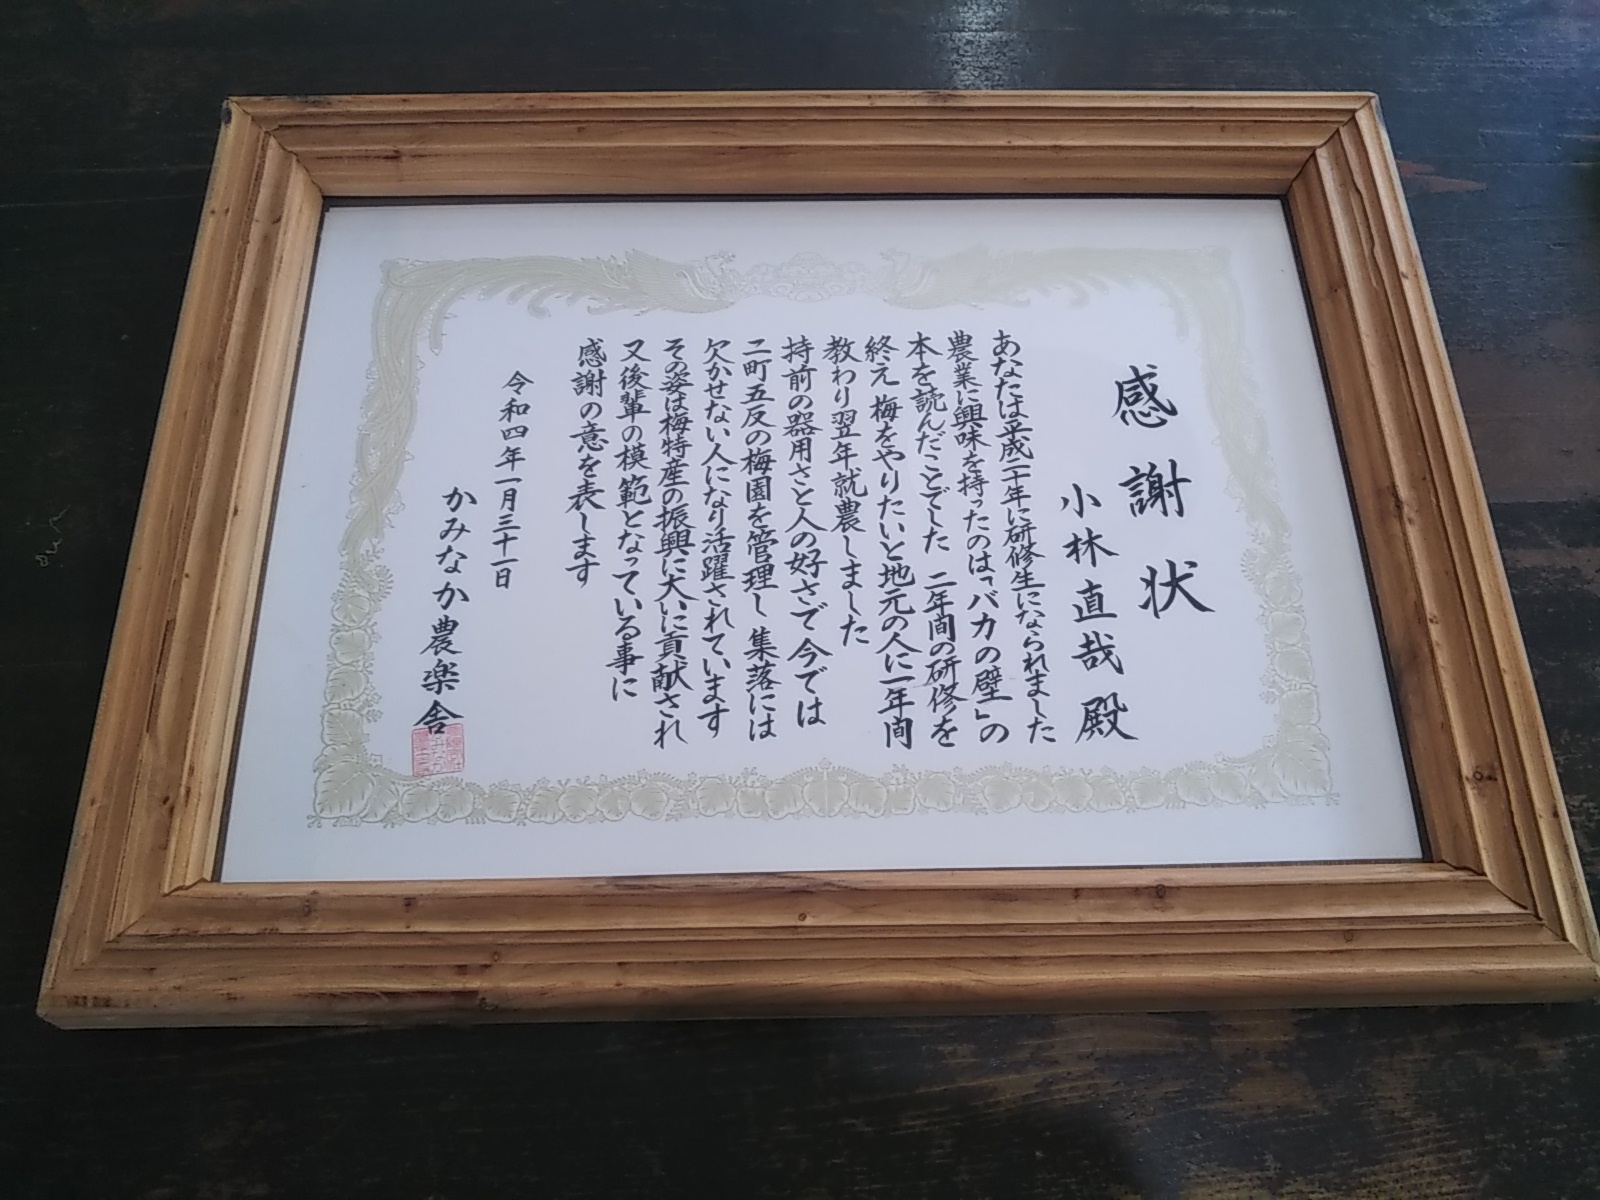 感謝状
小林直哉殿
あなたは平成二十年に研修生になられました
農業に興味を持ったのは「バカの壁」の
本を読んだことでした 二年間の研修を
終え梅をやりたいと地元の人に一年間
教わり翌年就農しました
持前の器用さと人の好さで今では
二町五反の梅園を管理し集落には
欠かせない人になり活躍されています
その姿は梅特産の振興に大いに貢献され
又後輩の模範となっている事に
感謝の意を表します
令和四年一月三十一日
かみなか農楽舎